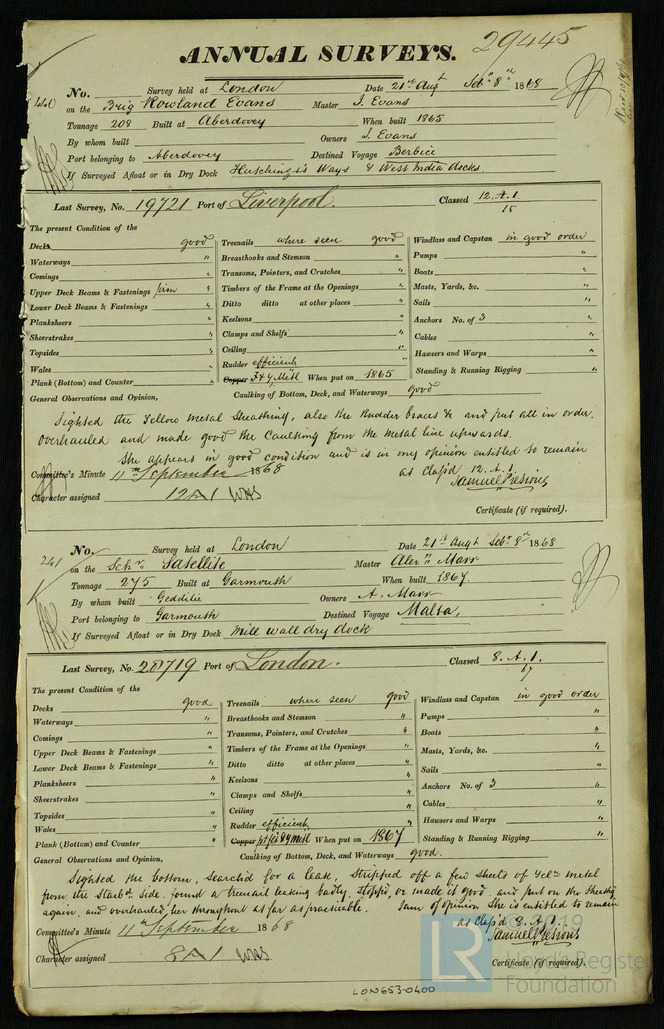 ANNUAL SURVEYS. 29445
240 No. Survey held at London Date 21st Augt Sebr 8th 1868
on the Brig Rowland Evans Master I. Evans
Tonnage 208 Built at Aberdovey When built 1865
By whom built Owners I. Evans
Port belonging to Aberdovey Destined Voyage Berbice
If Surveyed Afloat or in Dry Dock Hutchings's Ways & West India docks.
Last Survey, No. 19721 Port of Liverpool. Classed 12. A. 1.
15
The present Condition of the
Decks good Treenails where seen good Windlass and Capstan in good order
Waterways " Breasthooks and Stemson " Pumps "
Comings " Transoms, Pointers, and Crutches " Boats "
Upper Deck Beams & Fastenings firm " Timbers of the Frame at the Openings " Masts, Yards, &c. "
Lower Deck Beams & Fastenings " Ditto ditto at other places " Sails "
Planksheers " Keelsons " Anchors No. of 3 "
Sheerstrakes " Clamps and Shelfs " Cables "
Topsides " Ceiling " Hawsers and Warps "
Wales " Rudder efficient " Standing & Running Rigging "
Plank (Bottom) and Counter " Copper F & Y. Metl When put on 1865
General Observations and Opinion, Caulking of Bottom, Deck, and Waterways good
Sighted the Yellow Metal Sheathing, also the Rudder braces &c and put all in order.
Overhauled and made good the Caulking from the Metal line upwards.
She appears in good condition and is in my opinion entitled to remain
Committee's Minute 11th September 1868 as Clas'd 12. A. 1.
Samuel Presious
Character assigned 12 A 1 Certificate (if required).
241 No. Survey held at London Date 21st Augt Sebr 8th 1868
on the Schr Satellite Master Alexr Marr
Tonnage 275 Built at Garmouth When built 1867
By whom built Geddilie Owners A. Marr
Port belonging to Garmouth Destined Voyage Malta,
If Surveyed Afloat or in Dry Dock Mill wall dry dock
Last Survey, No. 28719 Port of London. Classed 8. A. 1.
67
The present Condition of the
Decks good Treenails where seen good Windlass and Capstan in good order
Waterways " Breasthooks and Stemson " Pumps "
Comings " Transoms, Pointers, and Crutches " Boats "
Upper Deck Beams & Fastenings " Timbers of the Frame at the Openings " Masts, Yards, &c. "
Lower Deck Beams & Fastenings " Ditto ditto at other places " Sails "
Planksheers " Keelsons " Anchors No. of 3 "
Sheerstrakes " Clamps and Shelfs " Cables "
Topsides " Ceiling " Hawsers and Warps "
Wales " Rudder efficient " Standing & Running Rigging "
Plank (Bottom) and Counter " Copper When put on 1867
General Observations and Opinion, Caulking of Bottom, Deck, and Waterways good.
Sighted the bottom, searched for a leak, stripped off a few sheets of Yelw metal
from the Starbd side. found a treenail leaking badly stopp'd, or made it good, and put on the Sheathg
again, and overhauled her throughout as far as practicable. I am of opinion She is entitled to remain
Committee's Minute 11th September 1868 as Clas'd 8. A. 1.
Samuel Presious
Character assigned 8 A 1 Certificate (if required).
LON653-0400
LR © 2019
Lloyd's Register
Foundation